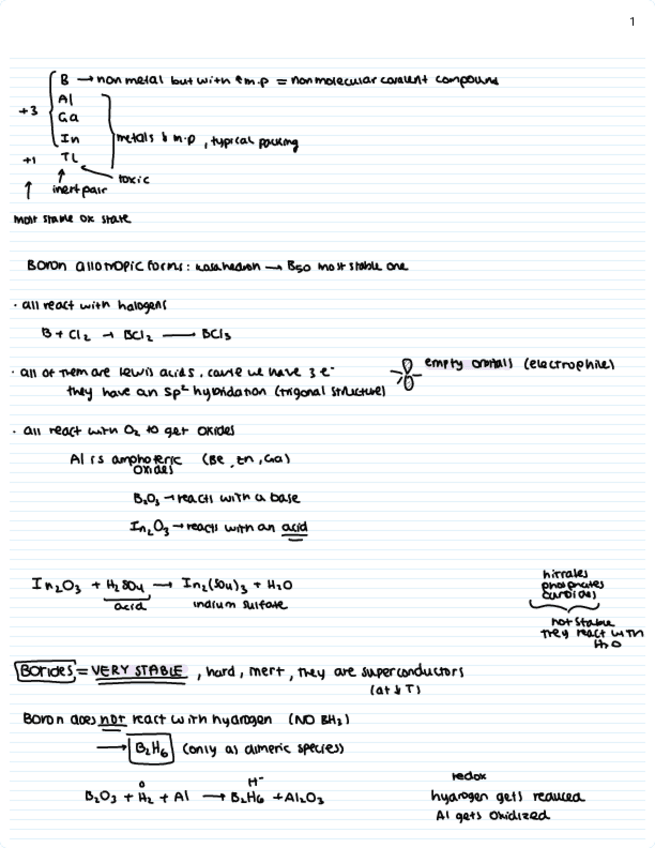 1
B → non metal but with ↑ m.p = non molecular covalent compound
Al
+3
Ga
In
metals ↓ m.p, typical packing
+1 TL
toxic
inert pair
most stable ox state
Boron allotropic forms: icosahedron → B50 most stable one
· all react with halogens
B + Cl2 → BCl2 ⟶ BCl3
· all of them are lewis acids, cause we have 3 e-
empty orbitals (electrophile)
they have an sp2 hybridation (trigonal structure)
· all react with O2 to get oxides
Al is amphoteric (Be, Zn, Ga)
oxides
B2O3 → reacts with a base
In2O3 → reacts with an acid
In2O3 + H2SO4 → In2(SO4)3 + H2O
acid
indium sulfate
nitrates
phosphates
not stable
they react with
H2O
Borides = VERY STABLE, hard, inert, they are superconductors
(at ↓ T)
Boron does not react with hydrogen (NO BH3)
→ B2H6 (only as dimeric species)
0 H-
B2O3 + H2 + Al → B2H6 + Al2O3
redox
hydrogen gets reduced
Al gets oxidized